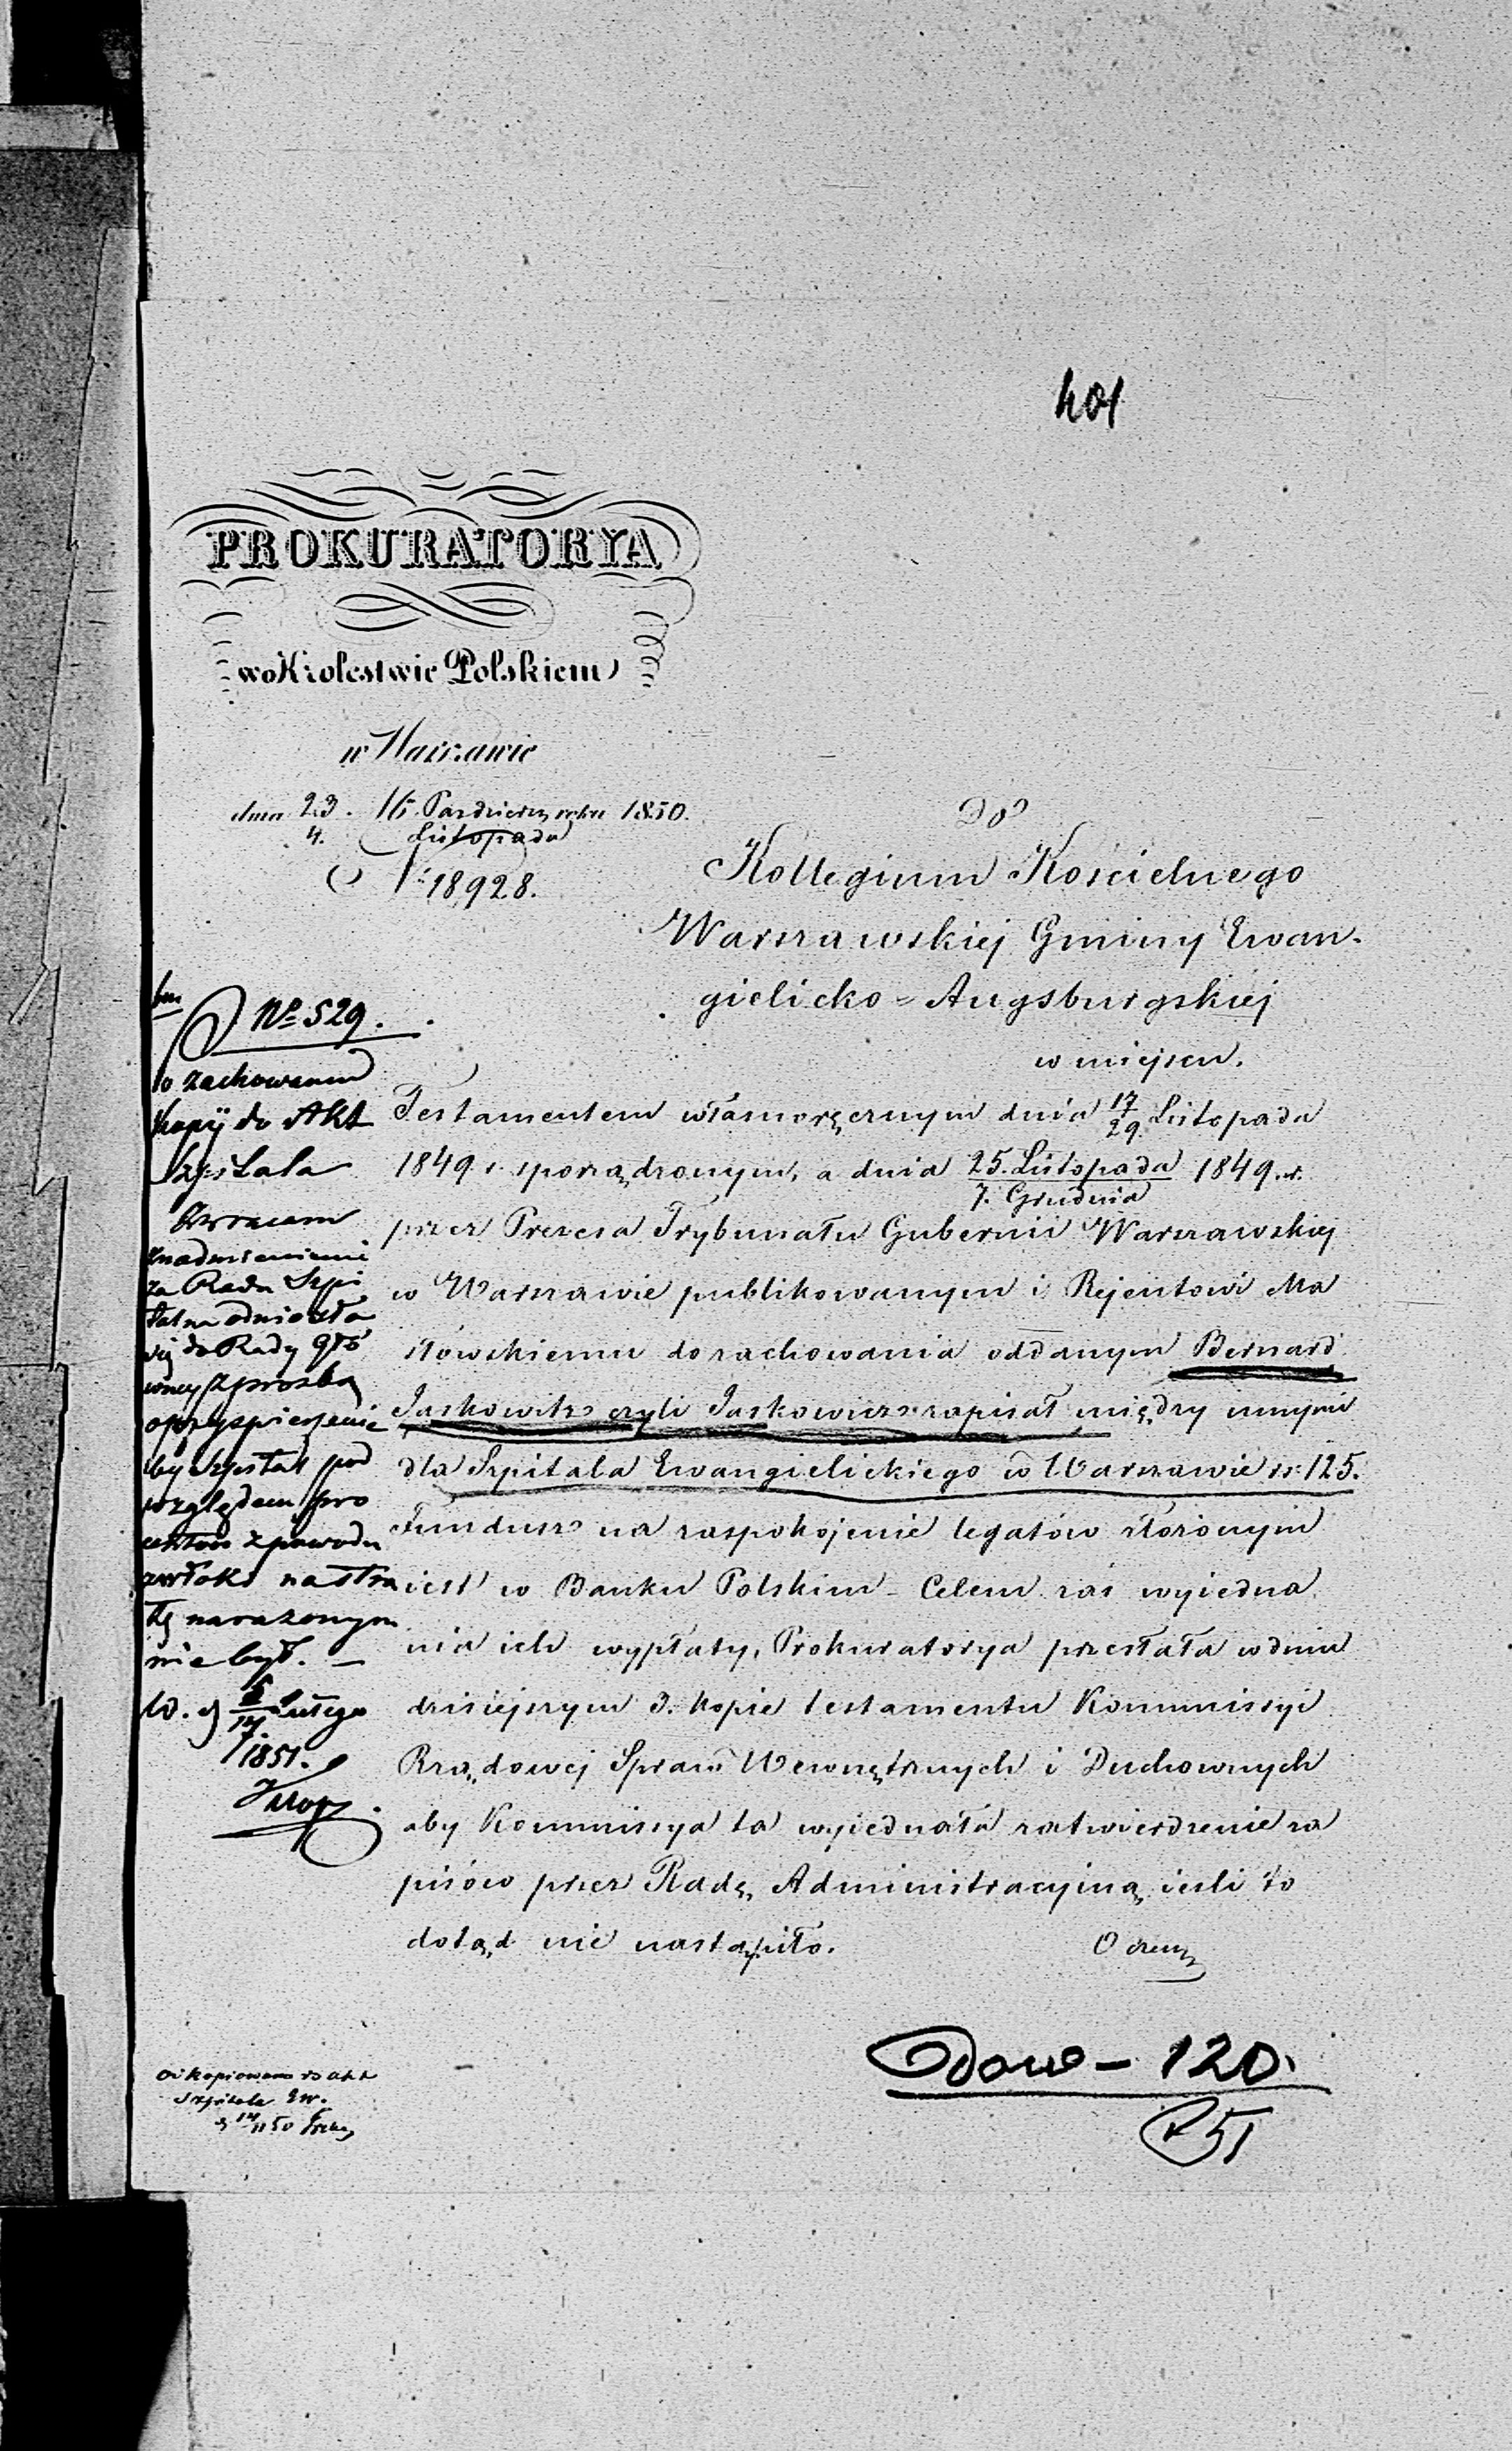 401
PROKURATORYA
w Krolestwie Polskiem
w Warszawie
dnia 23. Pazdzier. roku 1850.
4. Listopada
N: 18928.
Do
Kollegium Kościelnego
Warszawskiej Gminy Ewan-
gielicko-Augsburgskiej
w miejscu.
Testamentem własnoręcznym dnia 17/29 Listopada
1849 r. sporządzonym, a dnia 25. Listopada / 7. Grudnia 1849. r.
przez Prezesa Trybunału Gubernii Warszawskiej
w Warszawie publikowanym i Rejentowi Ma
słowskiemu do zachowania oddanym Bernard
Jaskowitz czyli Jaskowicz zapisał między innymi
dla Szpitala Ewangielickiego w Warszawie rs: 125.
Fundusz na zaspokojenie legatów złożonym
iest w Banku Polskim - Celem zaś wyiedna
nia ich wypłaty, Prokuratorya przesłała w dniu
dzisiejszym 3. kopie testamentu Kommissyi
Rządowej Spraw Wewnętrznych i Duchownych
aby Kommissya ta wyiednała zatwierdzenie za
pisów przez Radę Administracyiną ieśli to
dotąd nie nastąpiło.
O czem
No 529.
o zachowaniu
Kopij do Akt
Szpitala
Zwracam
nadmienieniem
za Rada Szpi
talna odniosła
się do Rady Głó
wney z prosbą
o przyspieszenie
by Szpital pod
względem pro
centów z powodu
zwłoki na stra
tę narażonym
nie był. -
W. d 2/14 Lutego
1851.
Odkopiowano do akt
Szpitala Ew.
d 14/11 50
120.
51